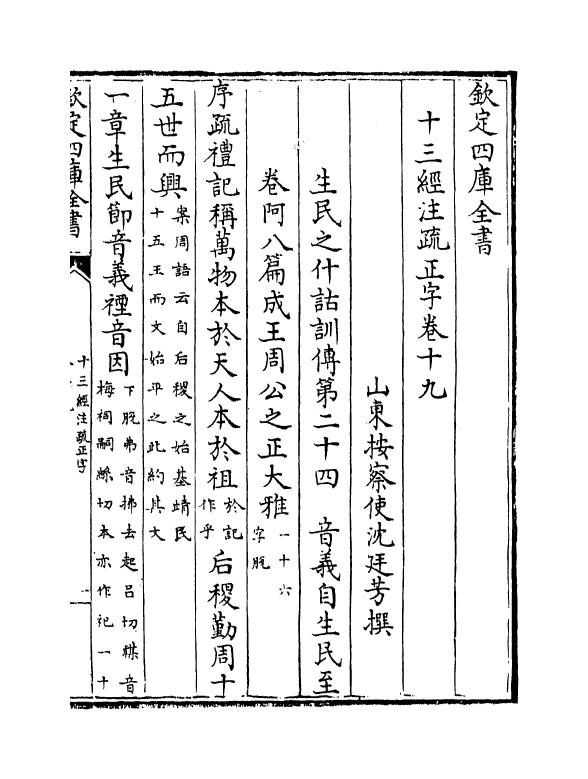 欽定四庫全書
十三經注疏正字卷十九
山東按察使沈廷芳撰
生民之什詁訓傳第二十四　音義自生民至
卷阿八篇成王周公之正大雅一十六字脫
序疏禮記稱萬物本於天人本於祖於記作乎后稷勤周十
五世而興案周語云自后稷之始基靖民十五王而文始平之此約其文
一章生民節音義禋音因下脫弗音拂去起呂切禖音梅祠嗣絲切本亦作祀一十
欽定四庫全書
十三經注疏正字
一